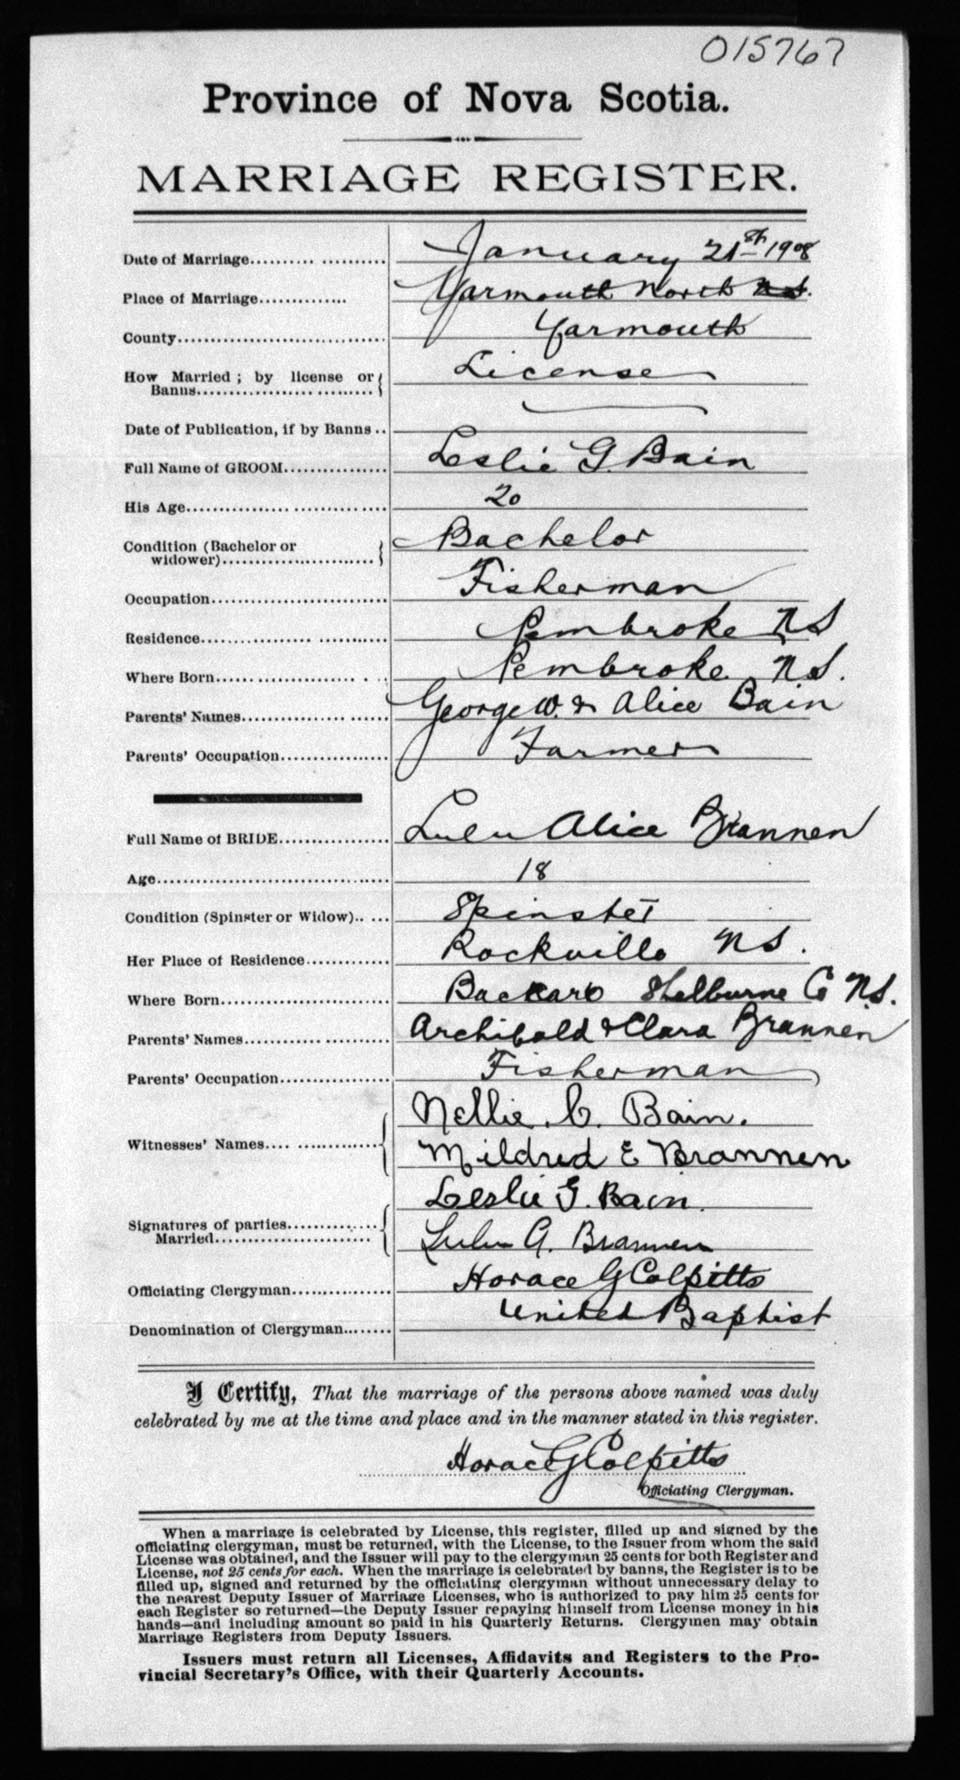 015767
Province of Nova Scotia.
MARRIAGE REGISTER.
Date of Marriage.......... .......... January 21st 1908
Place of Marriage.............. Yarmouth North N.S.
County................................ Yarmouth
How Married ; by license or License
Banns................... .........
Date of Publication, if by Banns ..
Full Name of GROOM............... Leslie G Bain
His Age................. .............. 20
Condition (Bachelor or Bachelor
widower)......................
Occupation.......................... Fisherman
Residence................ ........... Pembroke N S
Where Born...... ............. . . Pembroke N.S.
Parents' Names................ ..... George W. & Alice Bain
Parents' Occupation................ Farmer
Full Name of BRIDE................ Lulu Alice Brannen
Age.................................... 18
Condition (Spinster or Widow).. ... Spinster
Her Place of Residence............ Rockville N S.
Where Born......................... Baccaro Shelburne Co N.S.
Parents' Names............ ......... Archibald & Clara Brannen
Parents' Occupation................ Fisherman
Nellie C. Bain.
Witnesses' Names.... ..............
Mildred E Brannen
Leslie G. Bain.
Signatures of parties...............
Married........................ Lulu A. Brannen
Officiating Clergyman............... Horace G Colpitts
Denomination of Clergyman........ United Baptist
I Certify, That the marriage of the persons above named was duly
celebrated by me at the time and place and in the manner stated in this register.
Horace G Colpitts
Officiating Clergyman.
When a marriage is celebrated by License, this register, filled up and signed by the
officiating clergyman, must be returned, with the License, to the Issuer from whom the said
License was obtained, and the Issuer will pay to the clergyman 25 cents for both Register and
License, not 25 cents for each. When the marriage is celebrated by banns, the Register is to be
filled up, signed and returned by the officiating clergyman without unnecessary delay to
the nearest Deputy Issuer of Marriage Licenses, who is authorized to pay him 25 cents for
each Register so returned—the Deputy Issuer repaying himself from License money in his
hands—and including amount so paid in his Quarterly Returns. Clergymen may obtain
Marriage Registers from Deputy Issuers.
Issuers must return all Licenses, Affidavits and Registers to the Pro-
vincial Secretary's Office, with their Quarterly Accounts.